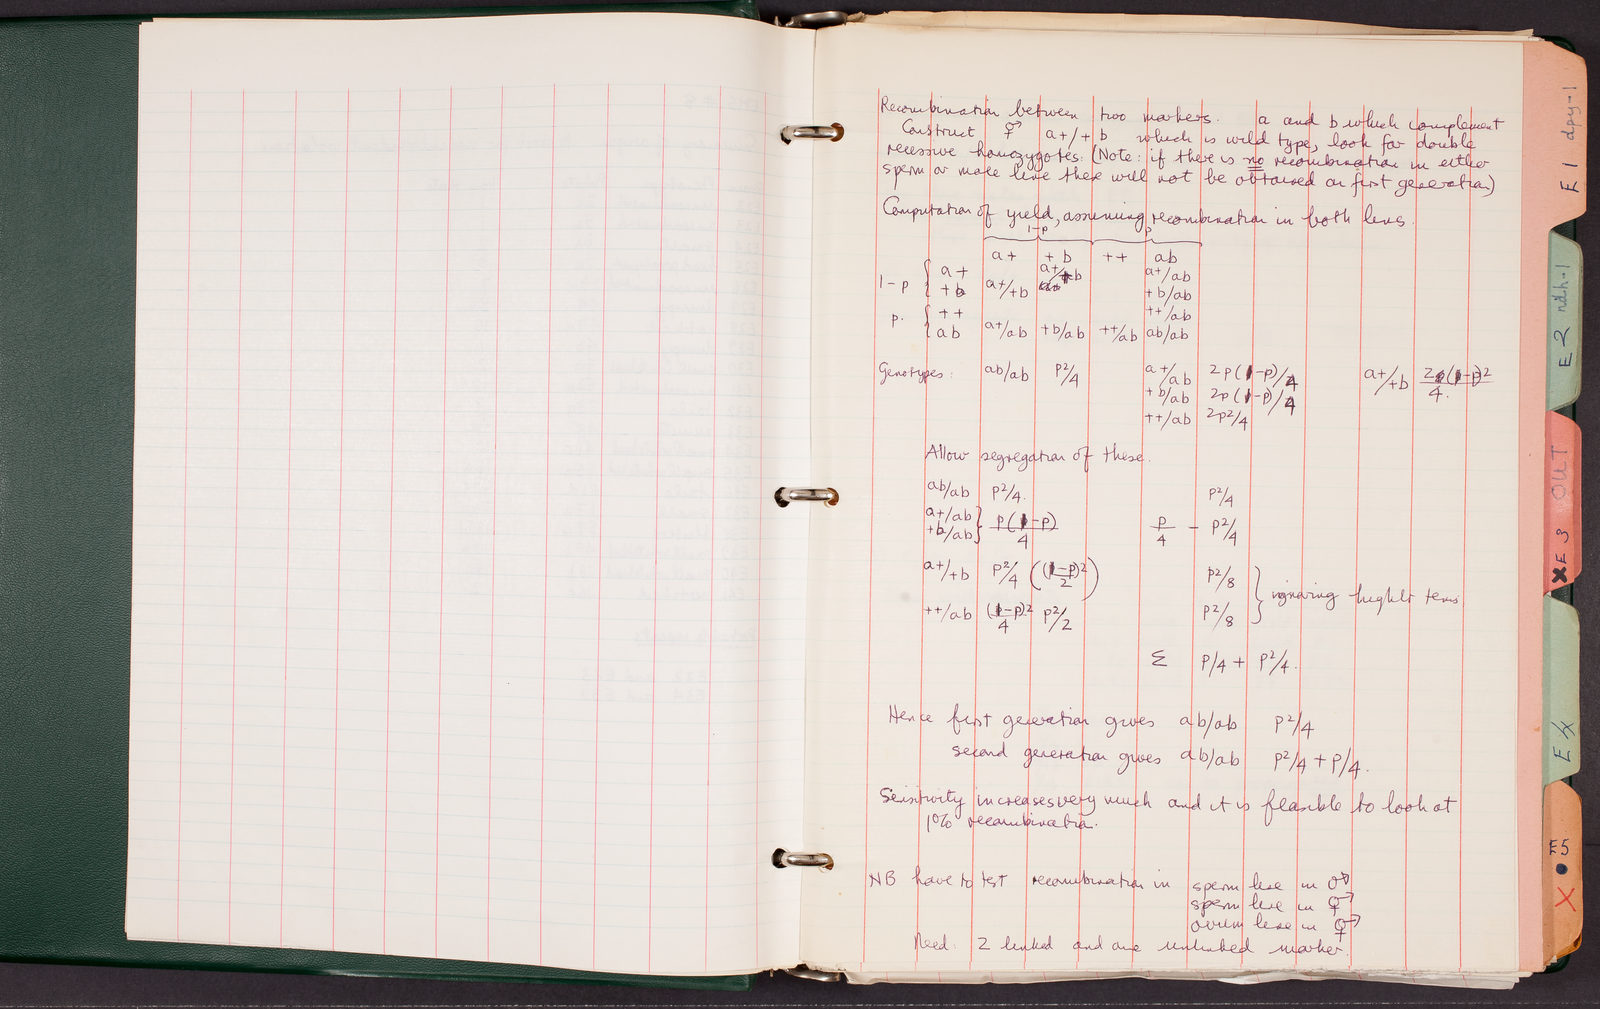 Recombination between two markers. a and b which complement
Construct ⚥ a+/+b which is wild type, look for double
recessive homozygotes. (Note: if there is no recombination in either
sperm or male line these will not be obtained on first generation)
Computation of yield, assuming recombination in both lines.
1-p p
a+ +b ++ ab
1-p { a+ a+/+b a+/ab
+b a+/+b +b/ab
p. { ++ ++/ab
ab a+/ab +b/ab ++/ab ab/ab
Genotypes: ab/ab p²/4 a+/ab 2p(1-p)/4 a+/+b 2(1-p)²/4.
+b/ab 2p(1-p)/4
++/ab 2p²/4
Allow segregation of these.
ab/ab p²/4. p²/4
a+/ab } p(1-p)/4 p/4 - p²/4
+b/ab }
a+/+b p²/4 ((1-p)²/2) p²/8 } ignoring higher terms
++/ab (1-p)²/4 p²/2 p²/8 }
Σ p/4 + p²/4.
Hence first generation gives ab/ab p²/4
second generation gives ab/ab p²/4 + p/4.
Sensitivity increases very much and it is feasible to look at
1% recombination.
NB have to test recombination in sperm line in ♂
sperm line in ⚥
ovum line in ⚥
Need: 2 linked and one unlinked marker.
E1 dpy-1
E2 ndh-1
XE3 OUT
E4
E5
X